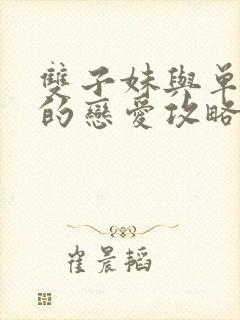 雙子妹與單
的戀愛攻略
崔晨韬